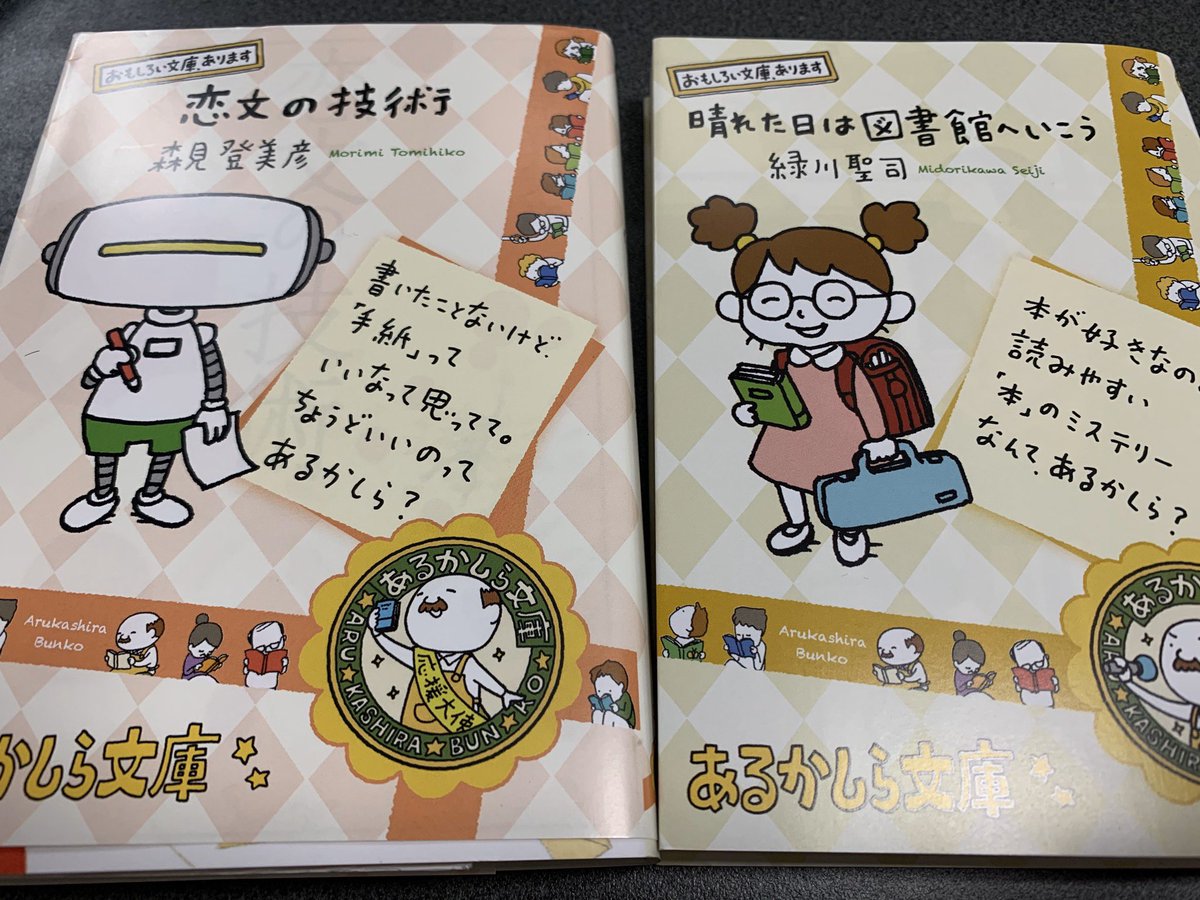 おもしろい文庫、あります
恋文の技術
森見登美彦 Morimi Tomihiko
書いたことないけど、
「手紙」って
いいなって思ってて。
ちょうどいいのって
あるかしら?
Arukashira
Bunko
あるかしら文庫
ARU KASHIRA BUNKO
応援大使
かしら文庫
おもしろい文庫、あります
晴れた日は図書館へいこう
緑川聖司 Midorikawa Seiji
本が好きなの。
読みやすい
「本」のミステリー
なんて、あるかしら?
Arukashira
Bunko
あるか
KASHIRA
あるかしら文庫